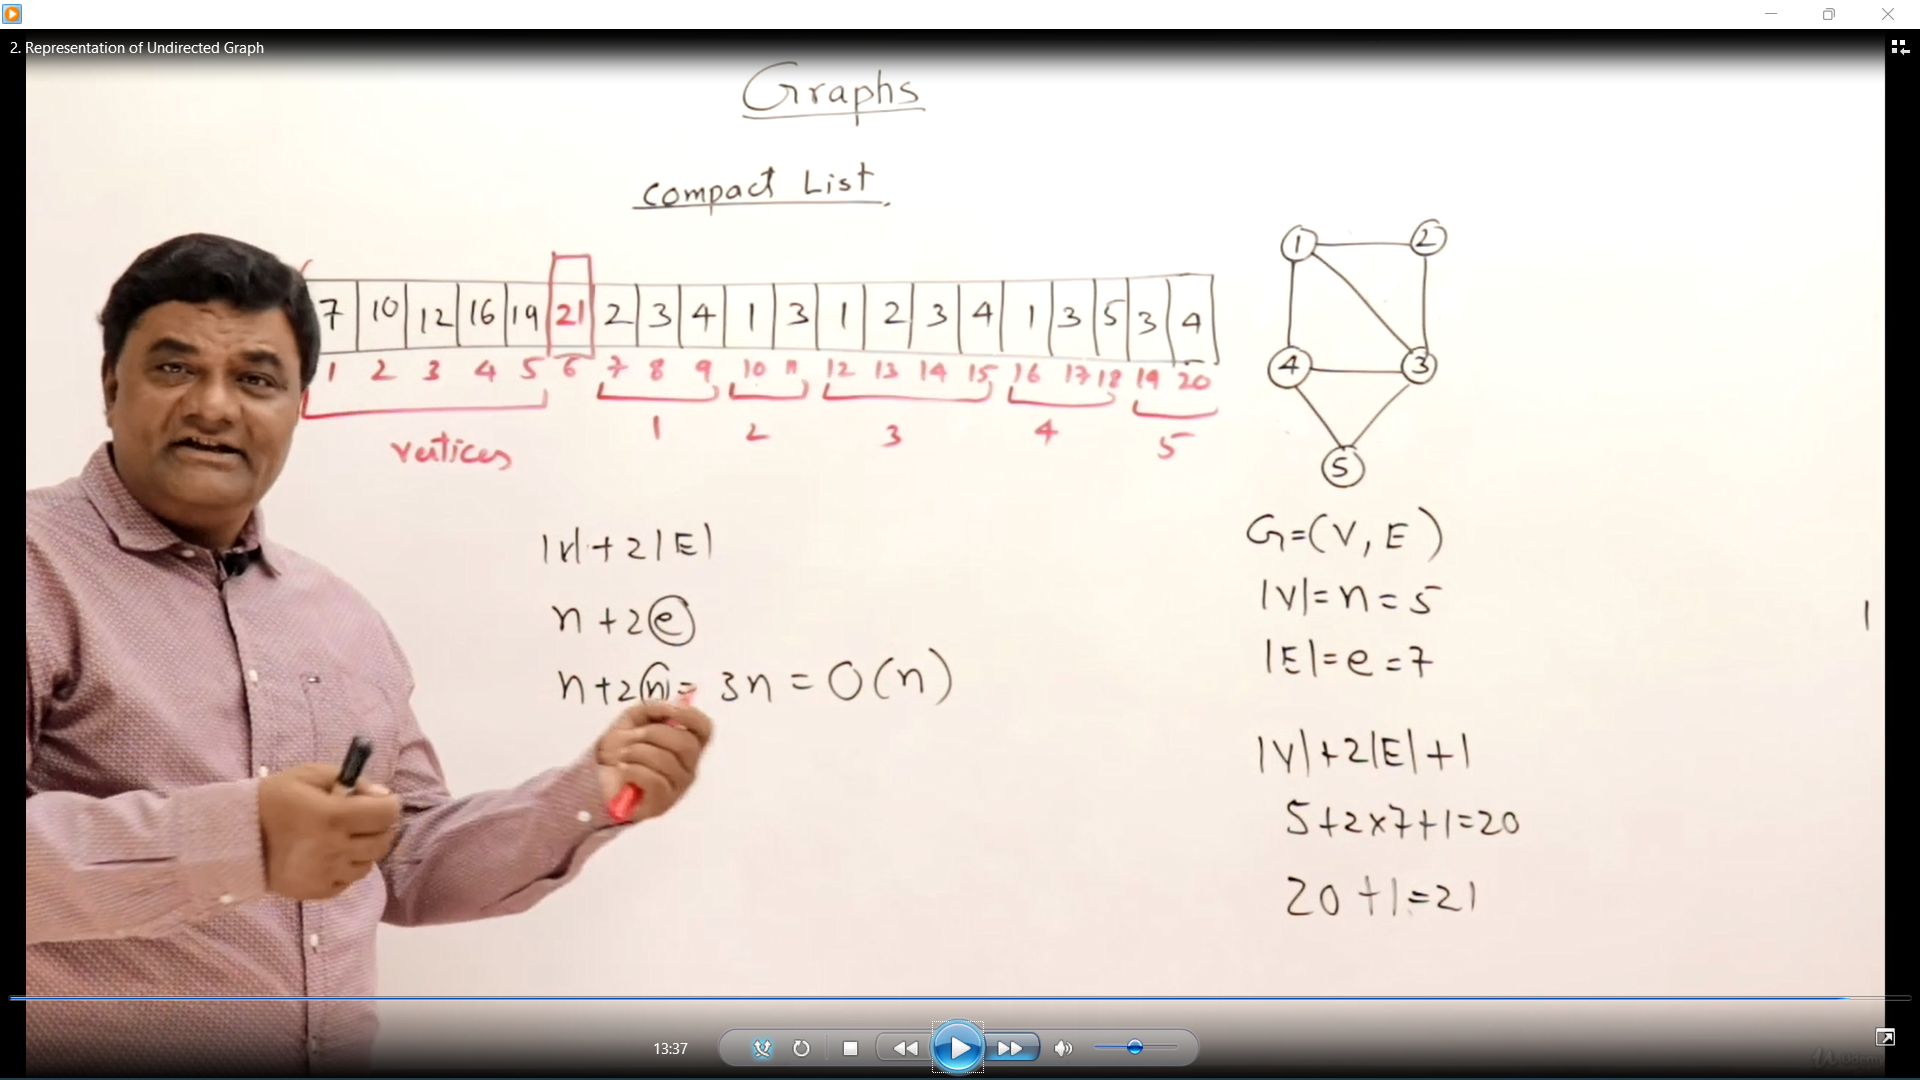 2. Representation of Undirected Graph
Graphs
Compact List
7 10 12 16 19 21 2 3 4 1 3 1 2 3 4 1 3 5 3 4
1 2 3 4 5 6 7 8 9 10 11 12 13 14 15 16 17 18 19 20
vertices 1 2 3 4 5
1 2
4 3
5
|V|+2|E|
n+2e
n+2n= 3n = O(n)
G=(V, E)
|V|=n=5
|E|=e=7
|V|+2|E|+1
5+2x7+1=20
20+1=21
13:37
Udemy